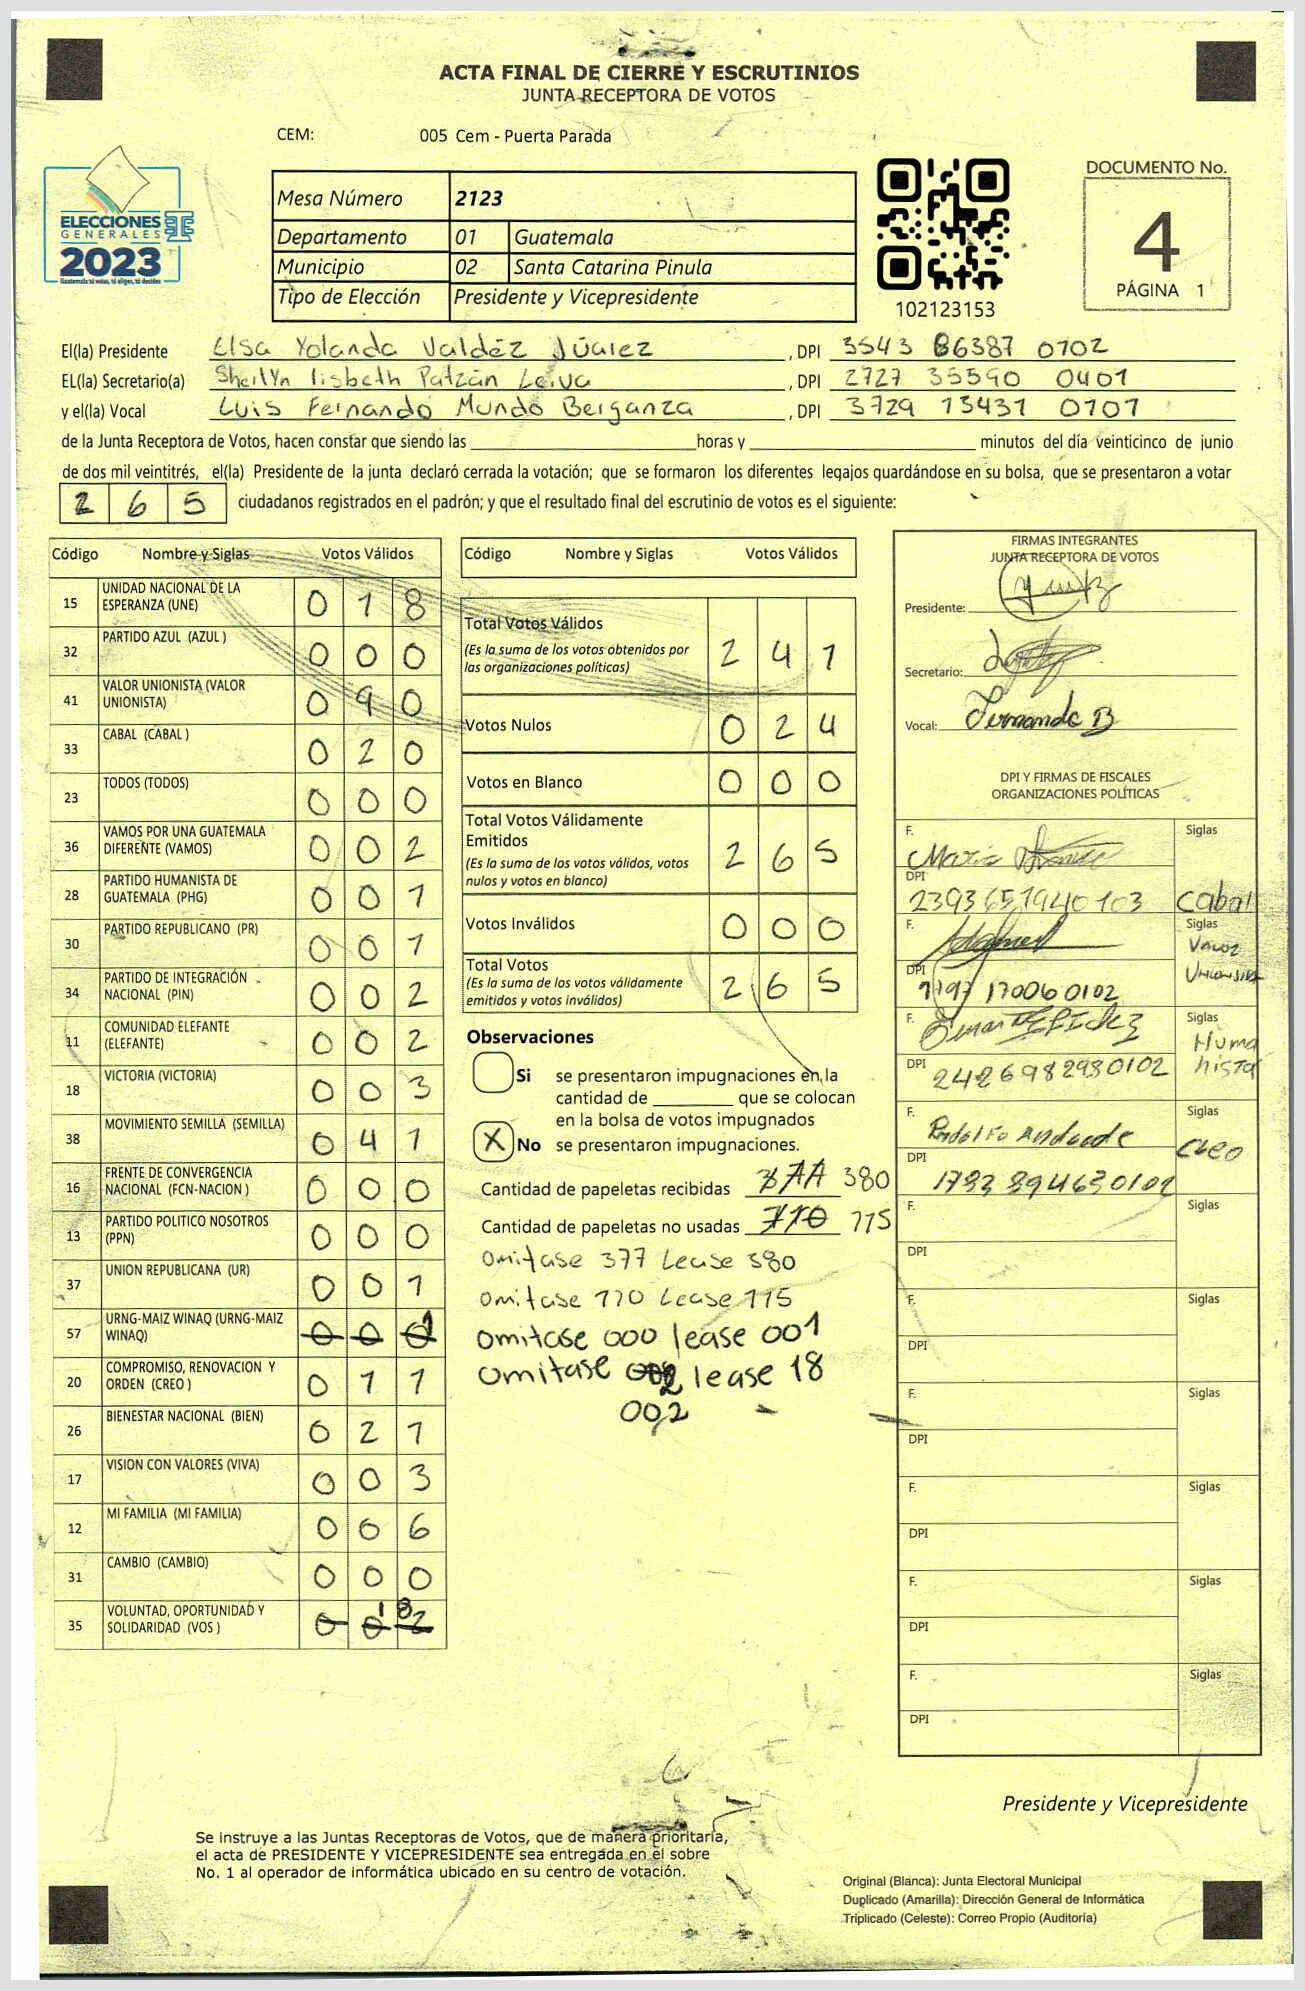 ACTA FINAL DE CIERRE Y ESCRUTINIOS
JUNTA RECEPTORA DE VOTOS
CEM: 005 Cem - Puerta Parada
ELECCIONES
GENERALES
2023
Guatemala tú votas, tú eliges, tú decides
Mesa Número 2123
Departamento 01 Guatemala
Municipio 02 Santa Catarina Pinula
Tipo de Elección Presidente y Vicepresidente
102123153
DOCUMENTO No.
4
PÁGINA 1
El(la) Presidente Elsa Yolanda Valdéz Júarez , DPI 3543 86387 0702
EL(la) Secretario(a) Sheilyn lisbeth Patzán Leiva , DPI 2727 35590 0401
y el(la) Vocal Luis Fernando Mundo Berganza , DPI 3729 13431 0101
de la Junta Receptora de Votos, hacen constar que siendo las horas y minutos del día veinticinco de junio
de dos mil veintitrés, el(la) Presidente de la junta declaró cerrada la votación; que se formaron los diferentes legajos guardándose en su bolsa, que se presentaron a votar
2 6 5 ciudadanos registrados en el padrón; y que el resultado final del escrutinio de votos es el siguiente:
Código Nombre y Siglas Votos Válidos
15 UNIDAD NACIONAL DE LA ESPERANZA (UNE) 0 1 8
32 PARTIDO AZUL (AZUL ) 0 0 0
41 VALOR UNIONISTA (VALOR UNIONISTA) 0 9 0
33 CABAL (CABAL ) 0 2 0
23 TODOS (TODOS) 0 0 0
36 VAMOS POR UNA GUATEMALA DIFERENTE (VAMOS) 0 0 2
28 PARTIDO HUMANISTA DE GUATEMALA (PHG) 0 0 1
30 PARTIDO REPUBLICANO (PR) 0 0 1
34 PARTIDO DE INTEGRACIÓN NACIONAL (PIN) 0 0 2
11 COMUNIDAD ELEFANTE (ELEFANTE) 0 0 2
18 VICTORIA (VICTORIA) 0 0 3
38 MOVIMIENTO SEMILLA (SEMILLA) 0 4 1
16 FRENTE DE CONVERGENCIA NACIONAL (FCN-NACION ) 0 0 0
13 PARTIDO POLITICO NOSOTROS (PPN) 0 0 0
37 UNION REPUBLICANA (UR) 0 0 1
57 URNG-MAIZ WINAQ (URNG-MAIZ WINAQ) 0 0 0 1
20 COMPROMISO, RENOVACION Y ORDEN (CREO ) 0 1 1
26 BIENESTAR NACIONAL (BIEN) 0 2 1
17 VISION CON VALORES (VIVA) 0 0 3
12 MI FAMILIA (MI FAMILIA) 0 0 6
31 CAMBIO (CAMBIO) 0 0 0
35 VOLUNTAD, OPORTUNIDAD Y SOLIDARIDAD (VOS ) 0 0 2 1 8
Código Nombre y Siglas Votos Válidos
Total Votos Válidos 2 4 1
(Es la suma de los votos obtenidos por
las organizaciones políticas)
Votos Nulos 0 2 4
Votos en Blanco 0 0 0
Total Votos Válidamente
Emitidos 2 6 5
(Es la suma de los votos válidos, votos
nulos y votos en blanco)
Votos Inválidos 0 0 0
Total Votos 2 6 5
(Es la suma de los votos válidamente
emitidos y votos inválidos)
Observaciones
Si se presentaron impugnaciones en la
cantidad de que se colocan
en la bolsa de votos impugnados
X No se presentaron impugnaciones.
Cantidad de papeletas recibidas 380
Cantidad de papeletas no usadas 110 115
omitase 377 Lease 380
omitase 110 Lease 115
omitase 000 lease 001
omitase lease 18
002
FIRMAS INTEGRANTES
JUNTA RECEPTORA DE VOTOS
Presidente:
Secretario:
Vocal: Fernando B
DPI Y FIRMAS DE FISCALES
ORGANIZACIONES POLÍTICAS
F. Siglas
Maria
DPI 2393651940103 Cabal
F. Siglas
Valor
DPI Unionista
170060102
F. Siglas
Omar Huma
DPI 2426982980102 nista
F. Siglas
Rodolfo Andrade
DPI Creo
1733894630102
F. Siglas
DPI
F. Siglas
DPI
F. Siglas
DPI
F. Siglas
DPI
F. Siglas
DPI
F. Siglas
DPI
Presidente y Vicepresidente
Se instruye a las Juntas Receptoras de Votos, que de manera prioritaria,
el acta de PRESIDENTE Y VICEPRESIDENTE sea entregada en el sobre
No. 1 al operador de informática ubicado en su centro de votación.
Original (Blanca): Junta Electoral Municipal
Duplicado (Amarilla): Dirección General de Informática
Triplicado (Celeste): Correo Propio (Auditoría)